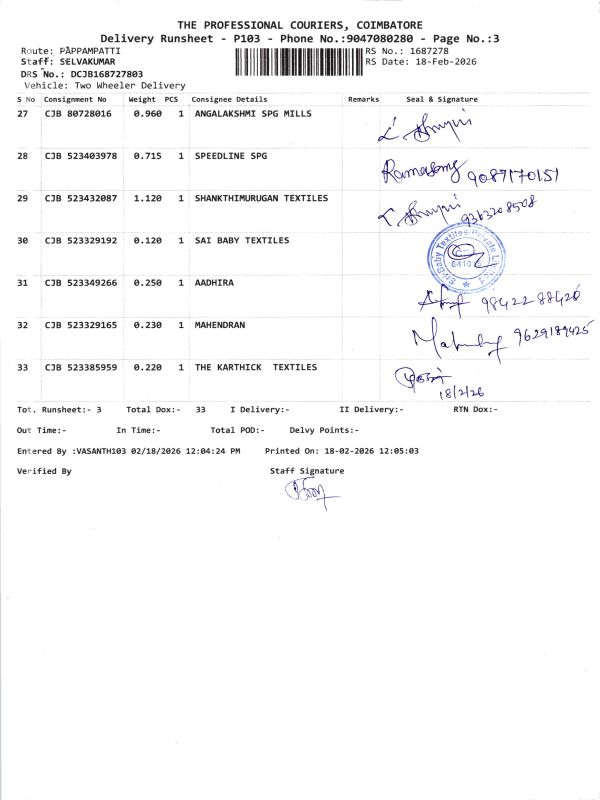 THE PROFESSIONAL COURIERS, COIMBATORE
Delivery Runsheet - P103 - Phone No.:9047080280 - Page No.:3
Route: PAPPAMPATTI RS No.: 1687278
Staff: SELVAKUMAR RS Date: 18-Feb-2026
DRS No.: DCJB168727803
Vehicle: Two Wheeler Delivery
S No Consignment No Weight PCS Consignee Details Remarks Seal & Signature
27 CJB 80728016 0.960 1 ANGALAKSHMI SPG MILLS
28 CJB 523403978 0.715 1 SPEEDLINE SPG Ramasamy 9087170151
29 CJB 523432087 1.120 1 SHANKTHIMURUGAN TEXTILES 9363208508
30 CJB 523329192 0.120 1 SAI BABY TEXTILES
31 CJB 523349266 0.250 1 AADHIRA 9842288420
32 CJB 523329165 0.230 1 MAHENDRAN 9629189425
33 CJB 523385959 0.220 1 THE KARTHICK TEXTILES
18/2/26
Tot. Runsheet:- 3 Total Dox:- 33 I Delivery:- II Delivery:- RTN Dox:-
Out Time:- In Time:- Total POD:- Delvy Points:-
Entered By :VASANTH103 02/18/2026 12:04:24 PM Printed On: 18-02-2026 12:05:03
Verified By Staff Signature